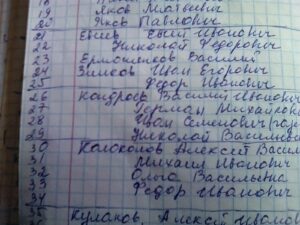 19 Яков Матвеевич
20 Яков Павлович
21 Евсеев
22 Николай Федорович
23 Ермоленков Василий
24 Зимов Иван Егорович
25 Федор Иванович
26 Кондрось Василий Иванович
27 Герман Михайлович
28 Иван Семенович
29 Николай Василье
30 Колоколов Алексей Васил
31 Михаил Иванович
32 Ольга Васильевна
33 Федор Иванович
34
35 Кулаков, Алексей Иванов